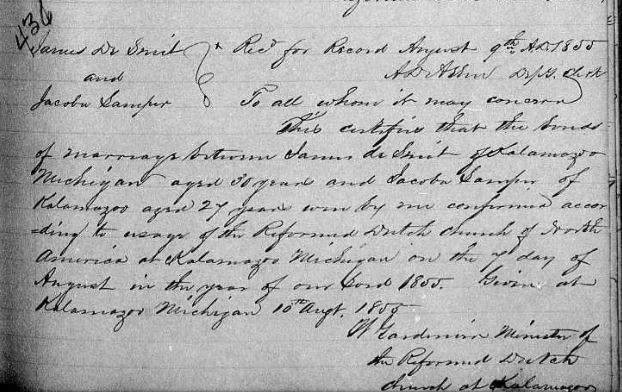 436
James De Smit } Recd for Record August 9th A.D. 1855
and A D Allen Depty. Clerk
Jacoba Lamper To all whom it may concern
This certifies that the bonds
of marriage between James de Smit of Kalamazoo
Michigan aged 30 years and Jacoba Lamper of
Kalamazoo aged 27 years were by me confirmed accor
=ding to usage of the Reformed Dutch church of North
America at Kalamazoo Michigan on the 7 day of
August in the year of our Lord 1855. Given at
Kalamazoo Michigan 10th Augt. 1855
Minister of
the Reformed Dutch
church at Kalamazoo